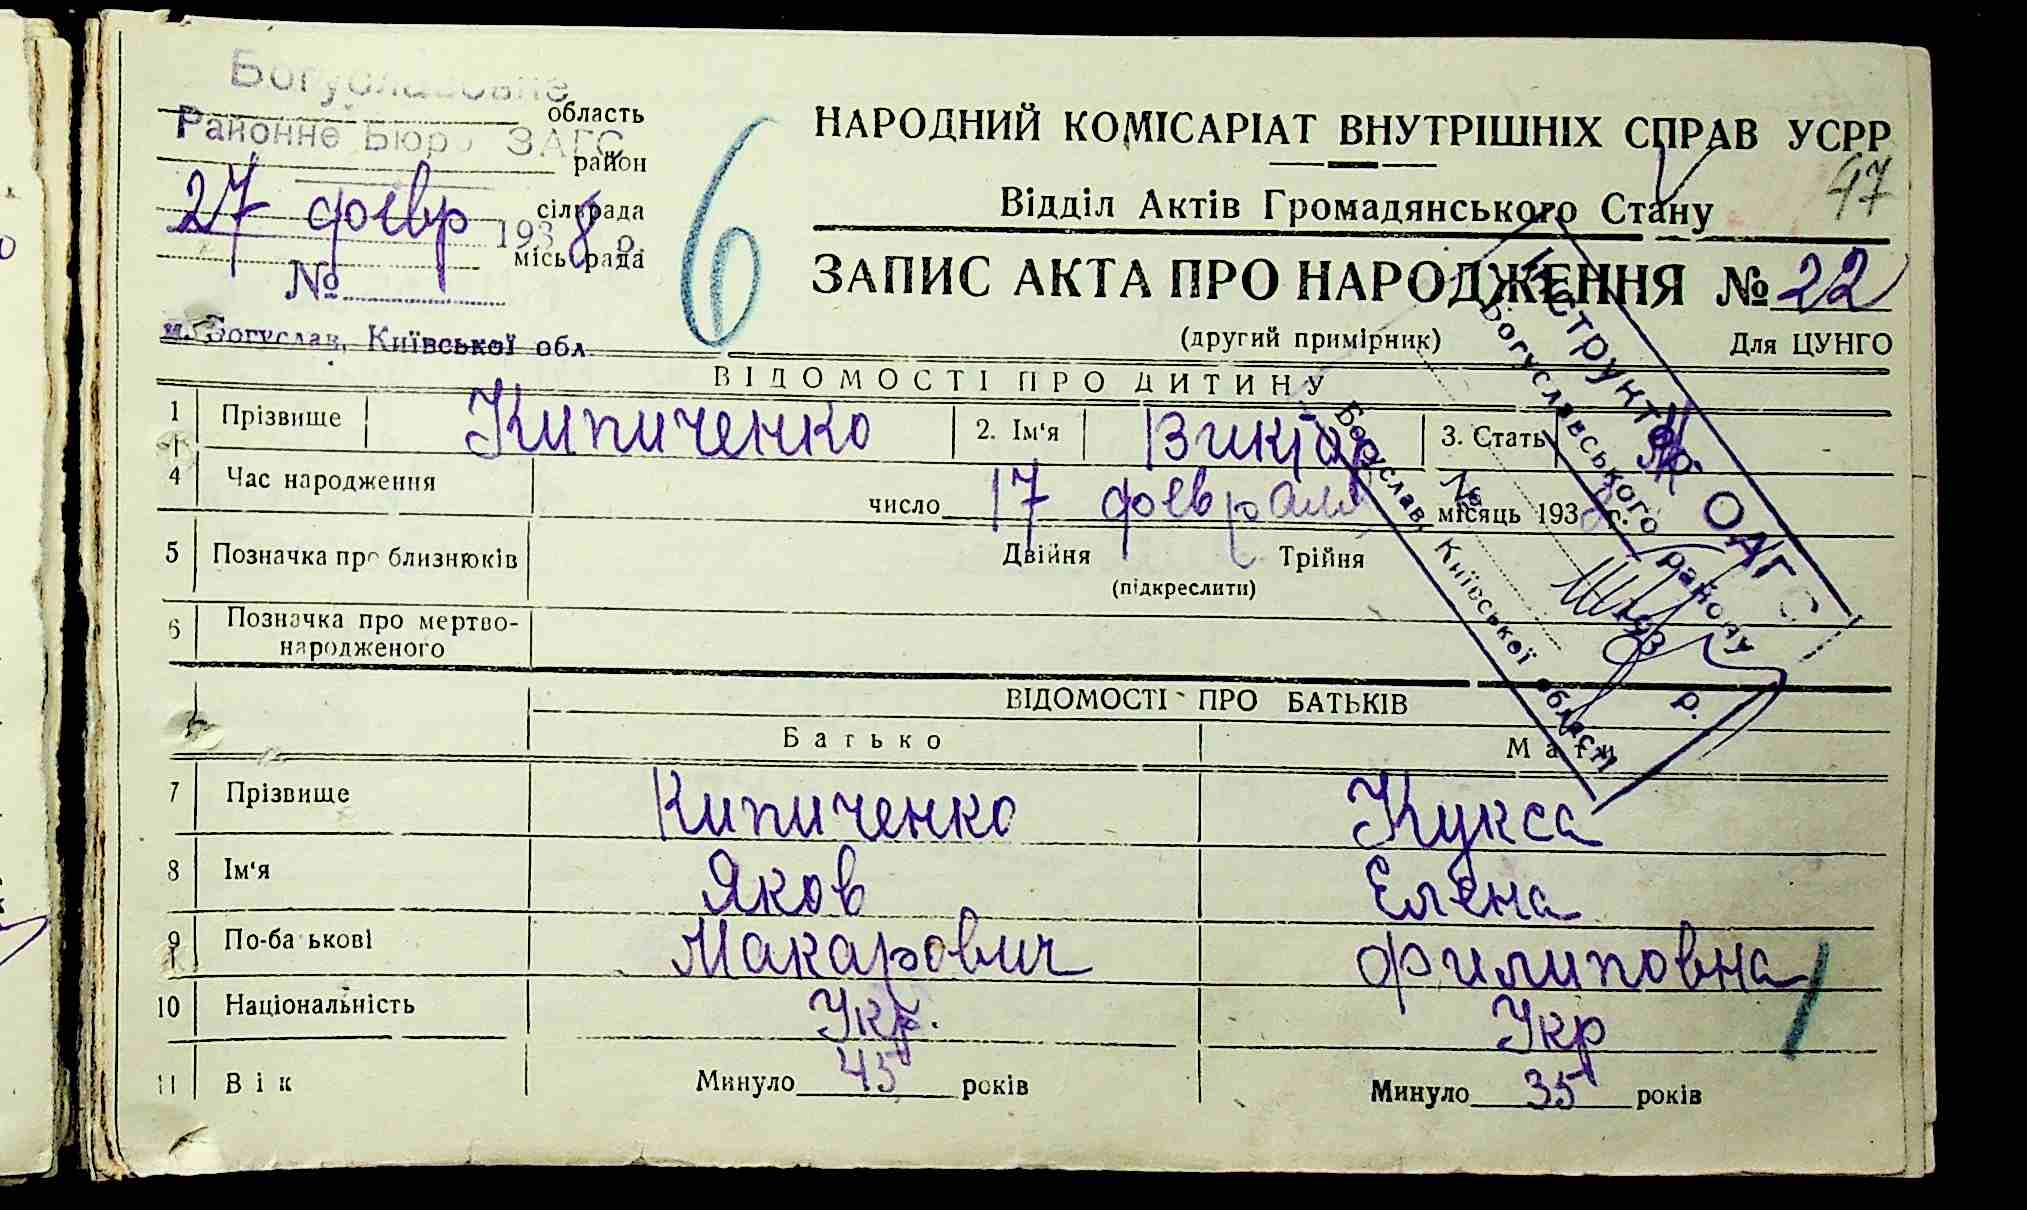 Богуславське
область
Районне Бюро ЗАГС
район
27 февр 1938 р.
сільрада
міськрада
№
м. Богуслав, Київської обл.
6
НАРОДНИЙ КОМІСАРІАТ ВНУТРІШНІХ СПРАВ УСРР
47
Відділ Актів Громадянського Стану
ЗАПИС АКТА ПРО НАРОДЖЕННЯ № 22
(другий примірник) Для ЦУНГО
ВІДОМОСТІ ПРО ДИТИНУ
1 Прізвище Кипиченко 2. Ім'я Виктор 3. Стать
4 Час народження число 17 февраля місяць 1938
Інструктор ОАГС
Богуславського району
№ 193 р.
Богуслав, Київської області
5 Позначка про близнюків Двійня Трійня
(підкреслити)
6 Позначка про мертво-
народженого
ВІДОМОСТІ ПРО БАТЬКІВ
Батько Мати
7 Прізвище Кипиченко Кукса
8 Ім'я Яков Елена
9 По-ба ькові Макарович Филиповна
10 Національність Укр. Укр
11 Вік Минуло 45 років Минуло 35 років